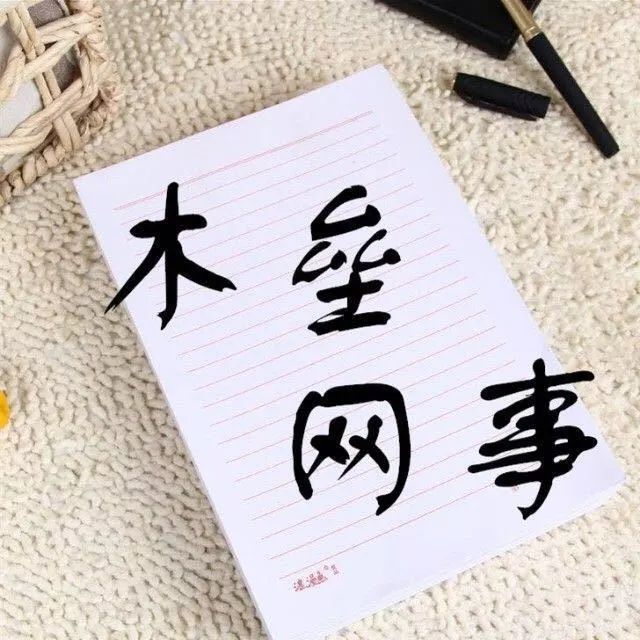 木垒
网事